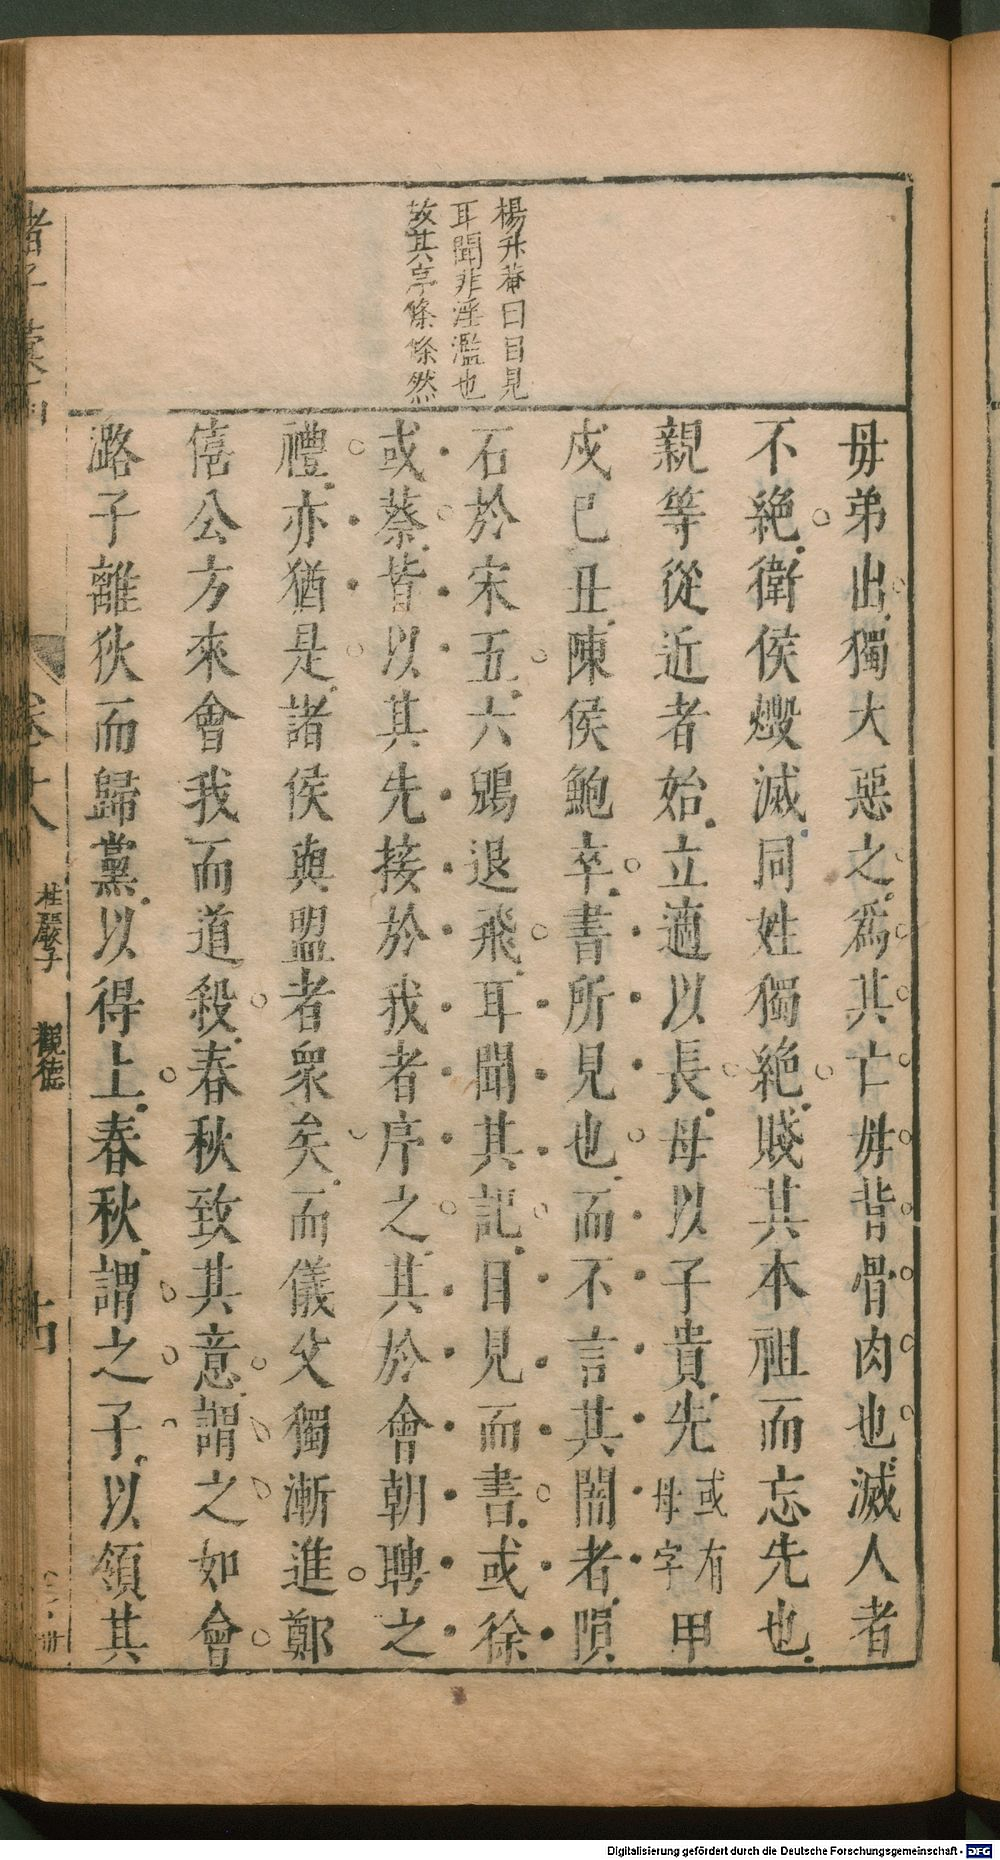 楊升菴曰目見
耳聞非淫濫也
故其序條條然
毋弟出獨大惡之爲其亡毋背骨肉也滅人者
不絶衛侯燬滅同姓獨絶賤其本祖而忘先也
親等從近者始立適以長母以子貴先或有母字甲
戍巳丑陳侯鮑卒書所見也而不言其闇者隕
石於宋五六鶂退飛耳聞其記目見而書或徐
或蔡皆以其先接於我者序之其於會朝聘之
禮亦猶是諸侯與盟者衆矣而儀父獨漸進鄭
僖公方來會我而道殺春秋致其意謂之如會
潞子離狄而歸黨以得上春秋謂之子以領其
諸子彙函
卷六
桂巖子
觀德
Digitalisierung gefördert durch die Deutsche Forschungsgemeinschaft - DFG